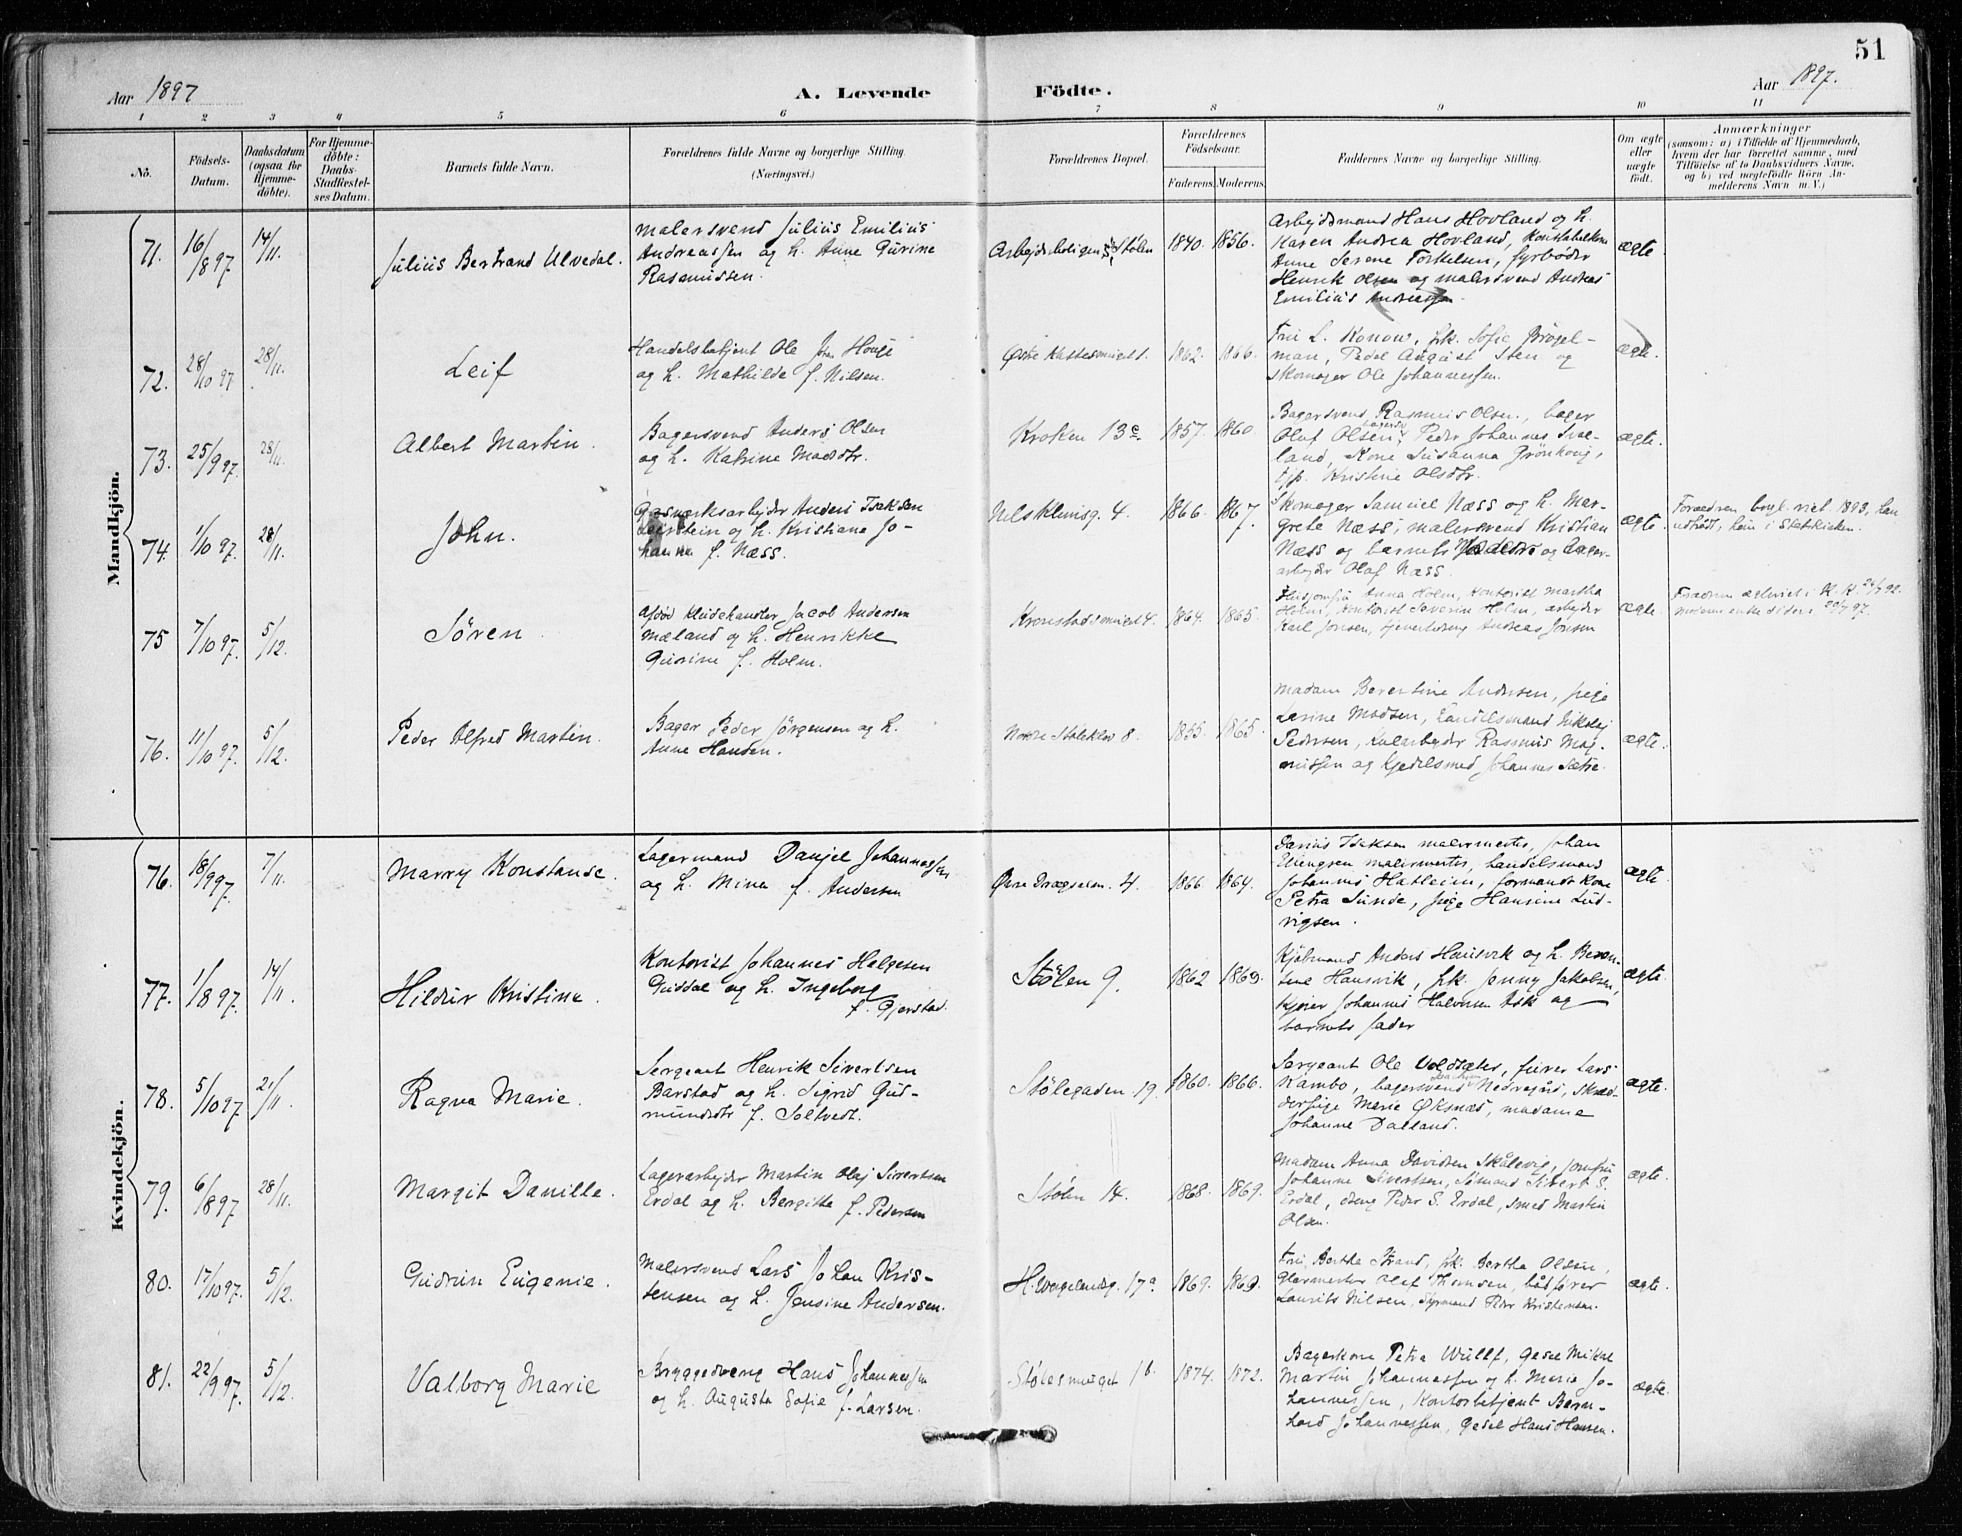 51
Aar 1897
A. Levende
Födte.
Aar 1897.
1 2 3 4 5 6 7 8 9 10 11
No.
Födsels-Datum.
Daabsdatum (ogsaa for Hjemme-döbte).
For Hjemme-döbte: Daabs-Stadfæstel-ses Datum.
Barnets fulde Navn.
Forældrenes fulde Navne og borgerlige Stilling.
(Næringsvei.)
Forældrenes Bopæl.
Forældrenes Födselsaar.
Faderens. Moderens.
Faddernes Navne og borgerlige Stilling.
Om ægte eller uægte födt.
Anmærkninger
(saasom: a) i Tilfælde af Hjemmedaab,
hvem der har forrettet samme, med
Tilföielse af to Daabsvidners Navne,
og b) ved uægtefödte Börn An-
melderens Navn m. V.)
Mandkjön.
71. 16/8 97 14/11. Julius Bertrand Ulvedal.
Malersvend Julius Emilius
Andreassen og h. Anne Gurine
Rasmussen.
Arbejderboligen Stølen 1840. 1856.
Arbejdsmand Hans Hovland og h.
Karen Andrea Hovland, Konstabelkone
Anne Serene Torkelsen, fyrbøder
Henrik Olsen og malersvend Andreas
Emilius Andreassen.
ægte
72. 28/10 97 28/11. Leif
Handelsbetjent Ole Johan Houge
og h. Mathilde f. Nilsen.
1862. 1866.
Fru L. Konow, frk. Sofie Brögel-
man, Pedel August Sten og
skomager Ole Johannessen.
ægte.
73. 25/9 97. 28/11. Albert Martin.
Bagersvend Anders Olsen
og h. Katrine Madsdtr.
Kroken 13c. 1857. 1860.
Bagersvend Rasmus Olsen, bager
Oluf Olsen, Peder Johannes
land, Kone Susanna Grönhoug,
tjp. Kristine Olsdtr.
ægte.
74. 1/10 97. 28/11. John.
Gasværksarbejder Anders Isaksen
og h. Kristiane Jo-
hanne f. Næss.
Nels Klemsg. 4. 1866. 1867.
Skomager Samuel Næss og h. Mar-
grete Næss, malersvend Kristian
Næss og barnets og lager-
arbejder Olaf Næss.
ægte.
Forældren borgl. viet 1893, han
udtrådt, hun i Statskirken.
75 7/10 97. 5/12. Sören
Afdöd kludehandler Jacob Andersen
Mæland og h. Henrikke
Gurine f. Holm.
Kronstadsmuget 4. 1864. 1865.
Anna Holm, kontorist Martha
Holm, kontorist Severin Holm, arbejder
Karl Jonsen, Andreas Jonsen
ægte.
76. 11/10 97. 5/12. Peder Alfred Martin.
Bager Peder Jörgensen og h.
Anne Hansen.
8. 1855. 1865.
Madam Berentine Andersen, pige
Larine Madsen, Handelsmand Nikolaj
Pedersen, Kularbejder Rasmus Mag-
nussen og Kjedelsmed Johannes Sætre.
ægte.
Kvindekjön.
76. 18/9 97. 7/11. Marry Konstanse.
Lagermand Danjel Johannessen
og h. Mina f. Andersen
Øvre Drægsalm. 4. 1866. 1864.
Darius Isaksen malermester, Johan
malermester, handelsmand
Johannes Hatleim, formands kone
Petra Sunde, pige Hansine Lud-
vigsen.
ægte
77. 1/8 97. 14/11. Hildur Kristine.
Kontorist Johannes Helgesen
Guddal og h. Ingeborg
f. Gjerstad.
Stölen 9. 1862 1869.
Kjöbmand Anders Hausvik og h. Beren-
tine Hausvik, frk. Jenny Jakobsen,
Kjører Johannes Halvorsen Ask og
barnets fader
ægte
78. 5/10 97 21/11. Ragna Marie.
Sergeant Henrik Sivertsen
Barstad og h. Sigrid Gud-
mundsdtr f. Soltvedt.
Stölegaden 19. 1860. 1866.
Sergeant Ole Voldsæter, furer Lars
Rambo, bagersvend Nedregård, skræd-
derpige Marie Öksnæs, madame
Johanne Dalland.
ægte
79. 6/8 97 28/11. Margit Danille.
Lagerarbejder Martin Olaj Sivertsen
Erdal og h. Bergitte f. Pedersen
Stölen 14. 1868. 1869.
Madam Anna Davidsen Skålevig, jomfru
Johanne Sivertsen, Sömand Sivert S.
Erdal, dreng Peder S. Erdal, smed Martin
Olsen.
ægte.
80. 17/10 97. 5/12. Gudrun Eugenie.
Malersvend Lars Johan Kris-
tensen og h. Jensine Andersen.
H. Wergelandsg. 17a 1869. 1869.
Fru Bertha Strand, frk. Bertha Olsen,
Glarmester Olaf Thomsen, bådförer
Laurits Nilsen, Styrmand Peder Kristensen.
ægte.
81. 22/9 97. 5/12. Valborg Marie
Bryggedreng Hans Johannessen
og h. Augusta Sofie f. Larsen.
Stölesmuget 1b. 1874. 1872.
Bagerkone Petra Wulff, Gesel Mikal
Martin Johannessen og h. Marie Jo-
hannessen, Kontorbetjent Bern-
hard Johannessen, Gesel Hans Hansen.
ægte